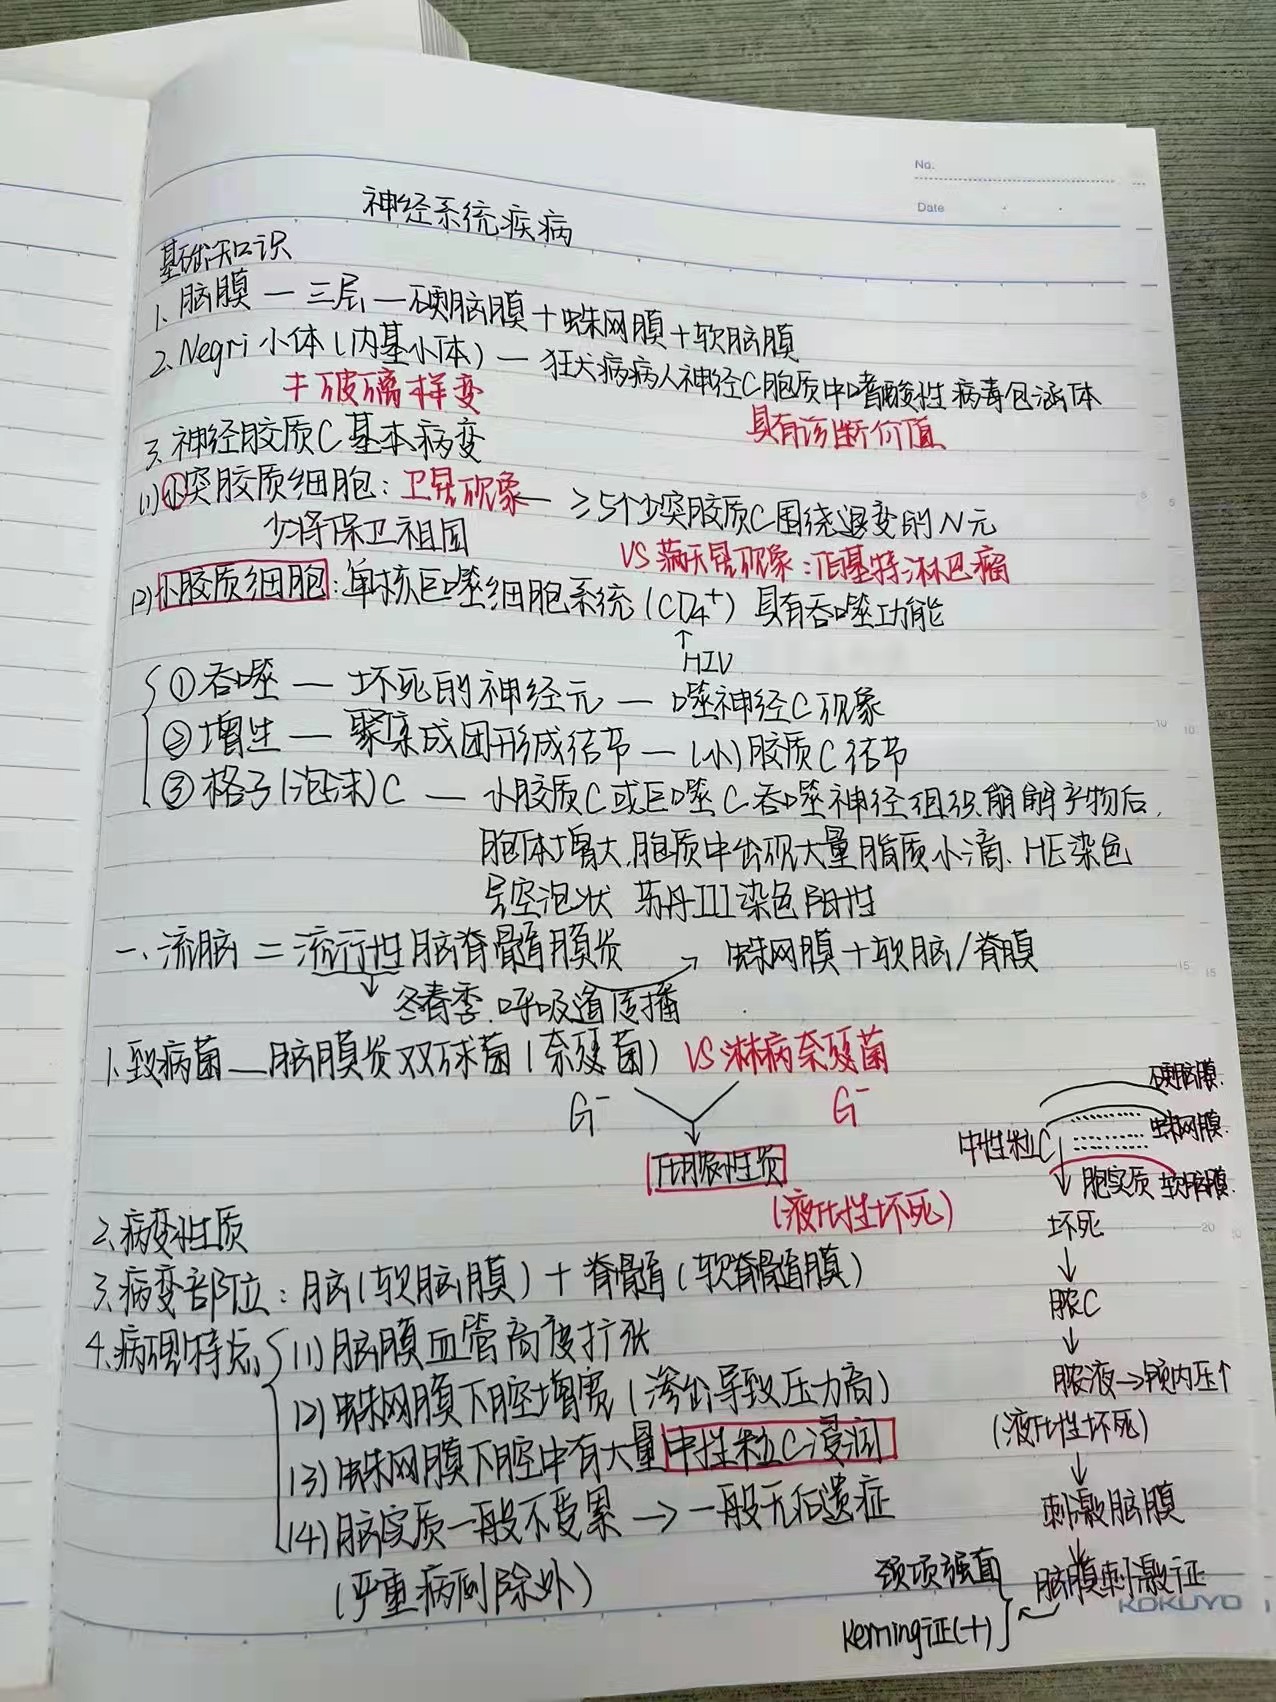 No.
Date
神经系统疾病
基础知识
1. 脑膜 — 三层 — 硬脑膜 + 蛛网膜 + 软脑膜
2. Negri 小体 (内基小体) — 狂犬病病人神经C胞质中嗜酸性病毒包涵体
≠玻璃样变
具有诊断价值
3. 神经胶质C基本病变
(1) 少突胶质细胞: 卫星现象 ← ≥5个少突胶质C围绕退变的N元
少将保卫祖国
VS 满天星现象: 伯基特淋巴瘤
(2) 小胶质细胞: 单核巨噬细胞系统 (CD4⁺) 具有吞噬功能
↑
HIV
① 吞噬 — 坏死的神经元 — 噬神经C现象
② 增生 — 聚集成团形成结节 — (小)胶质C结节
③ 格子(泡沫)C — 小胶质C或巨噬C吞噬神经组织崩解产物后,
胞体增大,胞质中出现大量脂质小滴、HE染色
呈空泡状 苏丹III染色阳性
一、流脑 = 流行性脑脊髓膜炎 → 蛛网膜 + 软脑/脊膜
↓ 冬春季. 呼吸道传播
1. 致病菌 — 脑膜炎双球菌 (奈瑟菌) VS 淋病奈瑟菌
G⁻ G⁻
化脓性炎
(液化性坏死)
2. 病变性质
3. 病变部位: 脑(软脑膜) + 脊髓(软脊髓膜)
4. 病理特点
(1) 脑膜血管高度扩张
(2) 蛛网膜下腔增宽 (渗出导致压力高)
(3) 蛛网膜下腔中有大量中性粒C浸润
(4) 脑实质一般不受累 → 一般无后遗症
(严重病例除外)
硬脑膜
蛛网膜
中性粒C
脑实质 软脑膜
坏死
↓
脓C
↓
脓液 → 颅内压↑
(液化性坏死)
↓
刺激脑膜
↓
脑膜刺激证
颈项强直
Kerning证(+)
KOKUYO